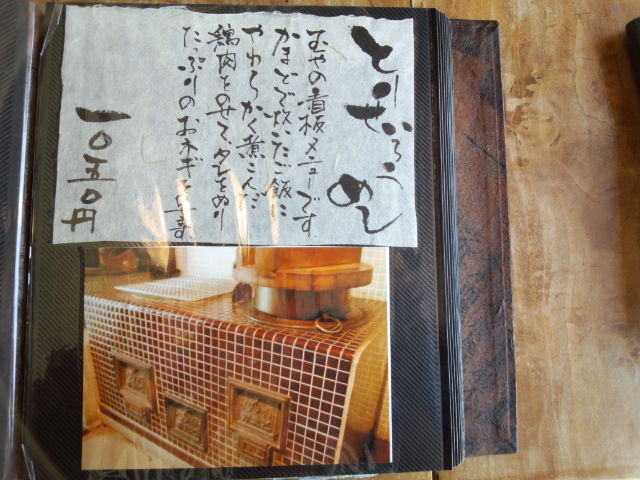 とりせいろうめし
むやの看板メニューです。
かまどで炊いたご飯に
やわらかく煮こんだ
鶏肉をのせて、タレをぬり
たっぷりのおネギと
一〇五〇円